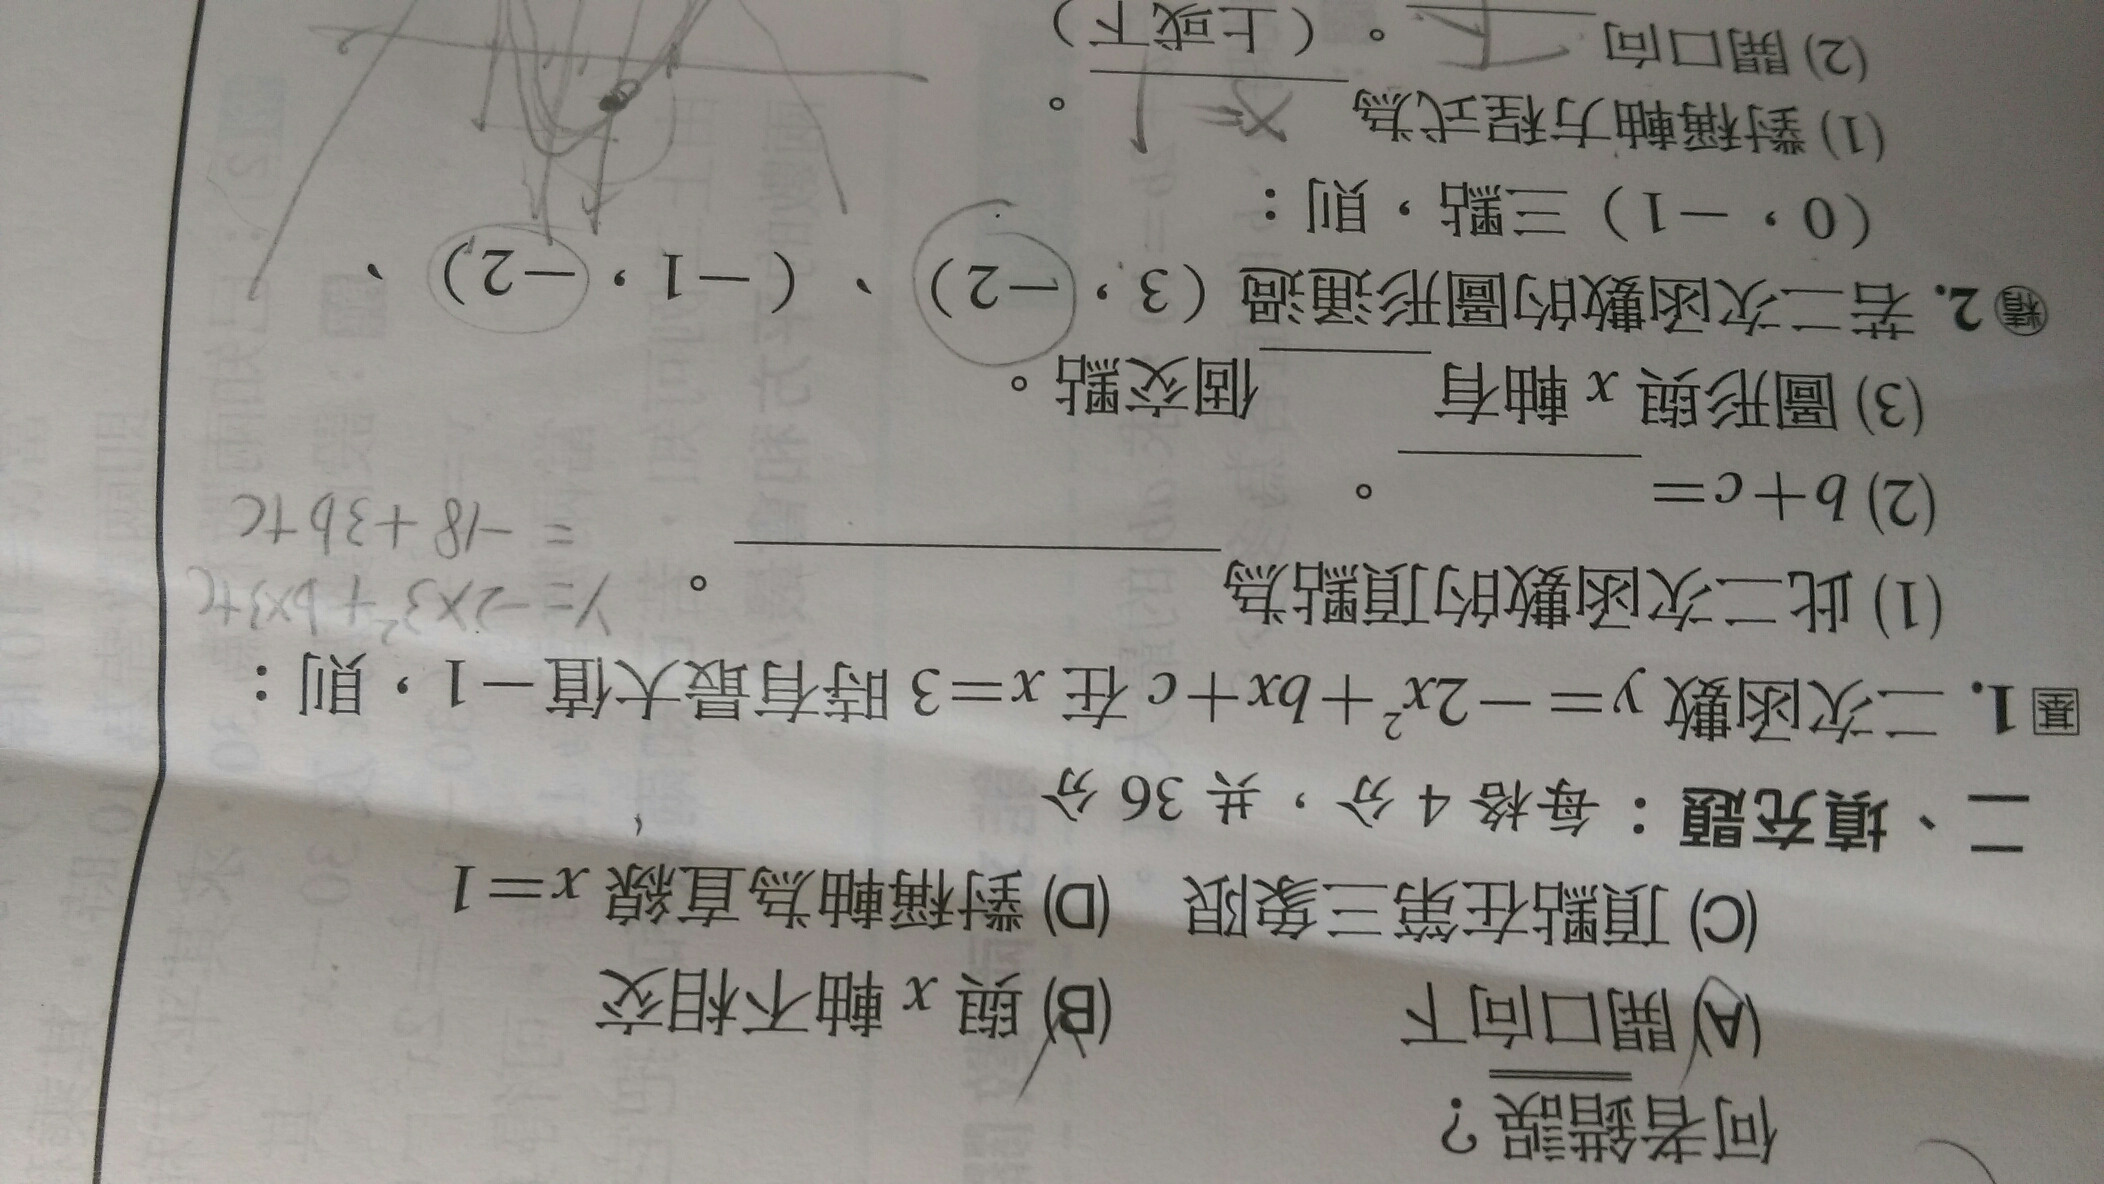 何者錯誤？
(A) 開口向下 (B) 與 x 軸不相交
(C) 頂點在第三象限 (D) 對稱軸為直線 x＝1
二、填充題：每格 4 分，共 36 分
基 1. 二次函數 y＝－2x²＋bx＋c 在 x＝3 時有最大值－1，則：
(1) 此二次函數的頂點為＿＿＿＿。
y=-2×3²+b×3+c
= -18+3b+c
(2) b＋c＝＿＿＿＿。
(3) 圖形與 x 軸有＿＿＿＿個交點。
精 2. 若二次函數的圖形通過（3，－2）、（－1，－2）、
（0，－1）三點，則：
(1) 對稱軸方程式為 x= 1。
(2) 開口向 下。（上或下）